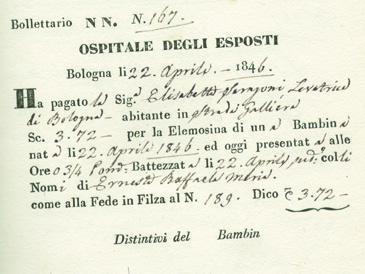 Bollettario NN. N. 167.
OSPITALE DEGLI ESPOSTI
Bologna li 22. Aprile. — 1846.
Ha pagato la Sig.a Elisabetta Levatrice
di Bologna — abitante in Strada Galliera
Sc. 3.72 — per la Elemosina di un a Bambin a
nat a li 22. Aprile 1846. ed oggi presentat a alle
Ore 0 3/4 Battezzat a li 22. Aprile sud. col li
Nomi di Ernesta Raffaela Maria.
come alla Fede in Filza al N. 189. Dico 3.72 —
Distintivi del Bambin